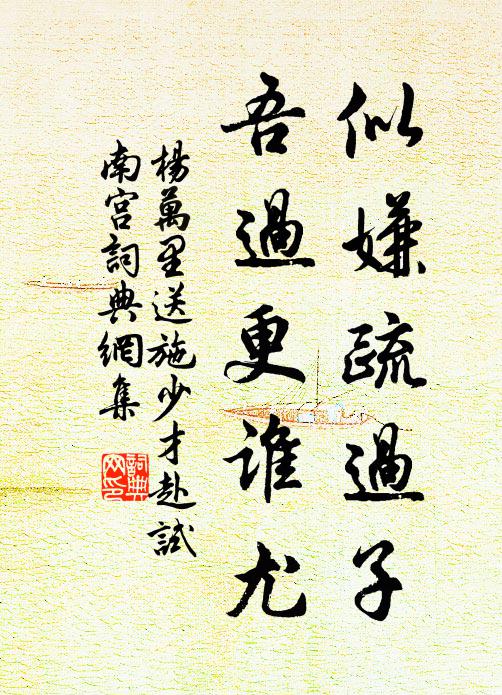 似嫌疏過子
吾過更誰尤
楊萬里送施少才赴試
南宮詞典網集
詞典
网印